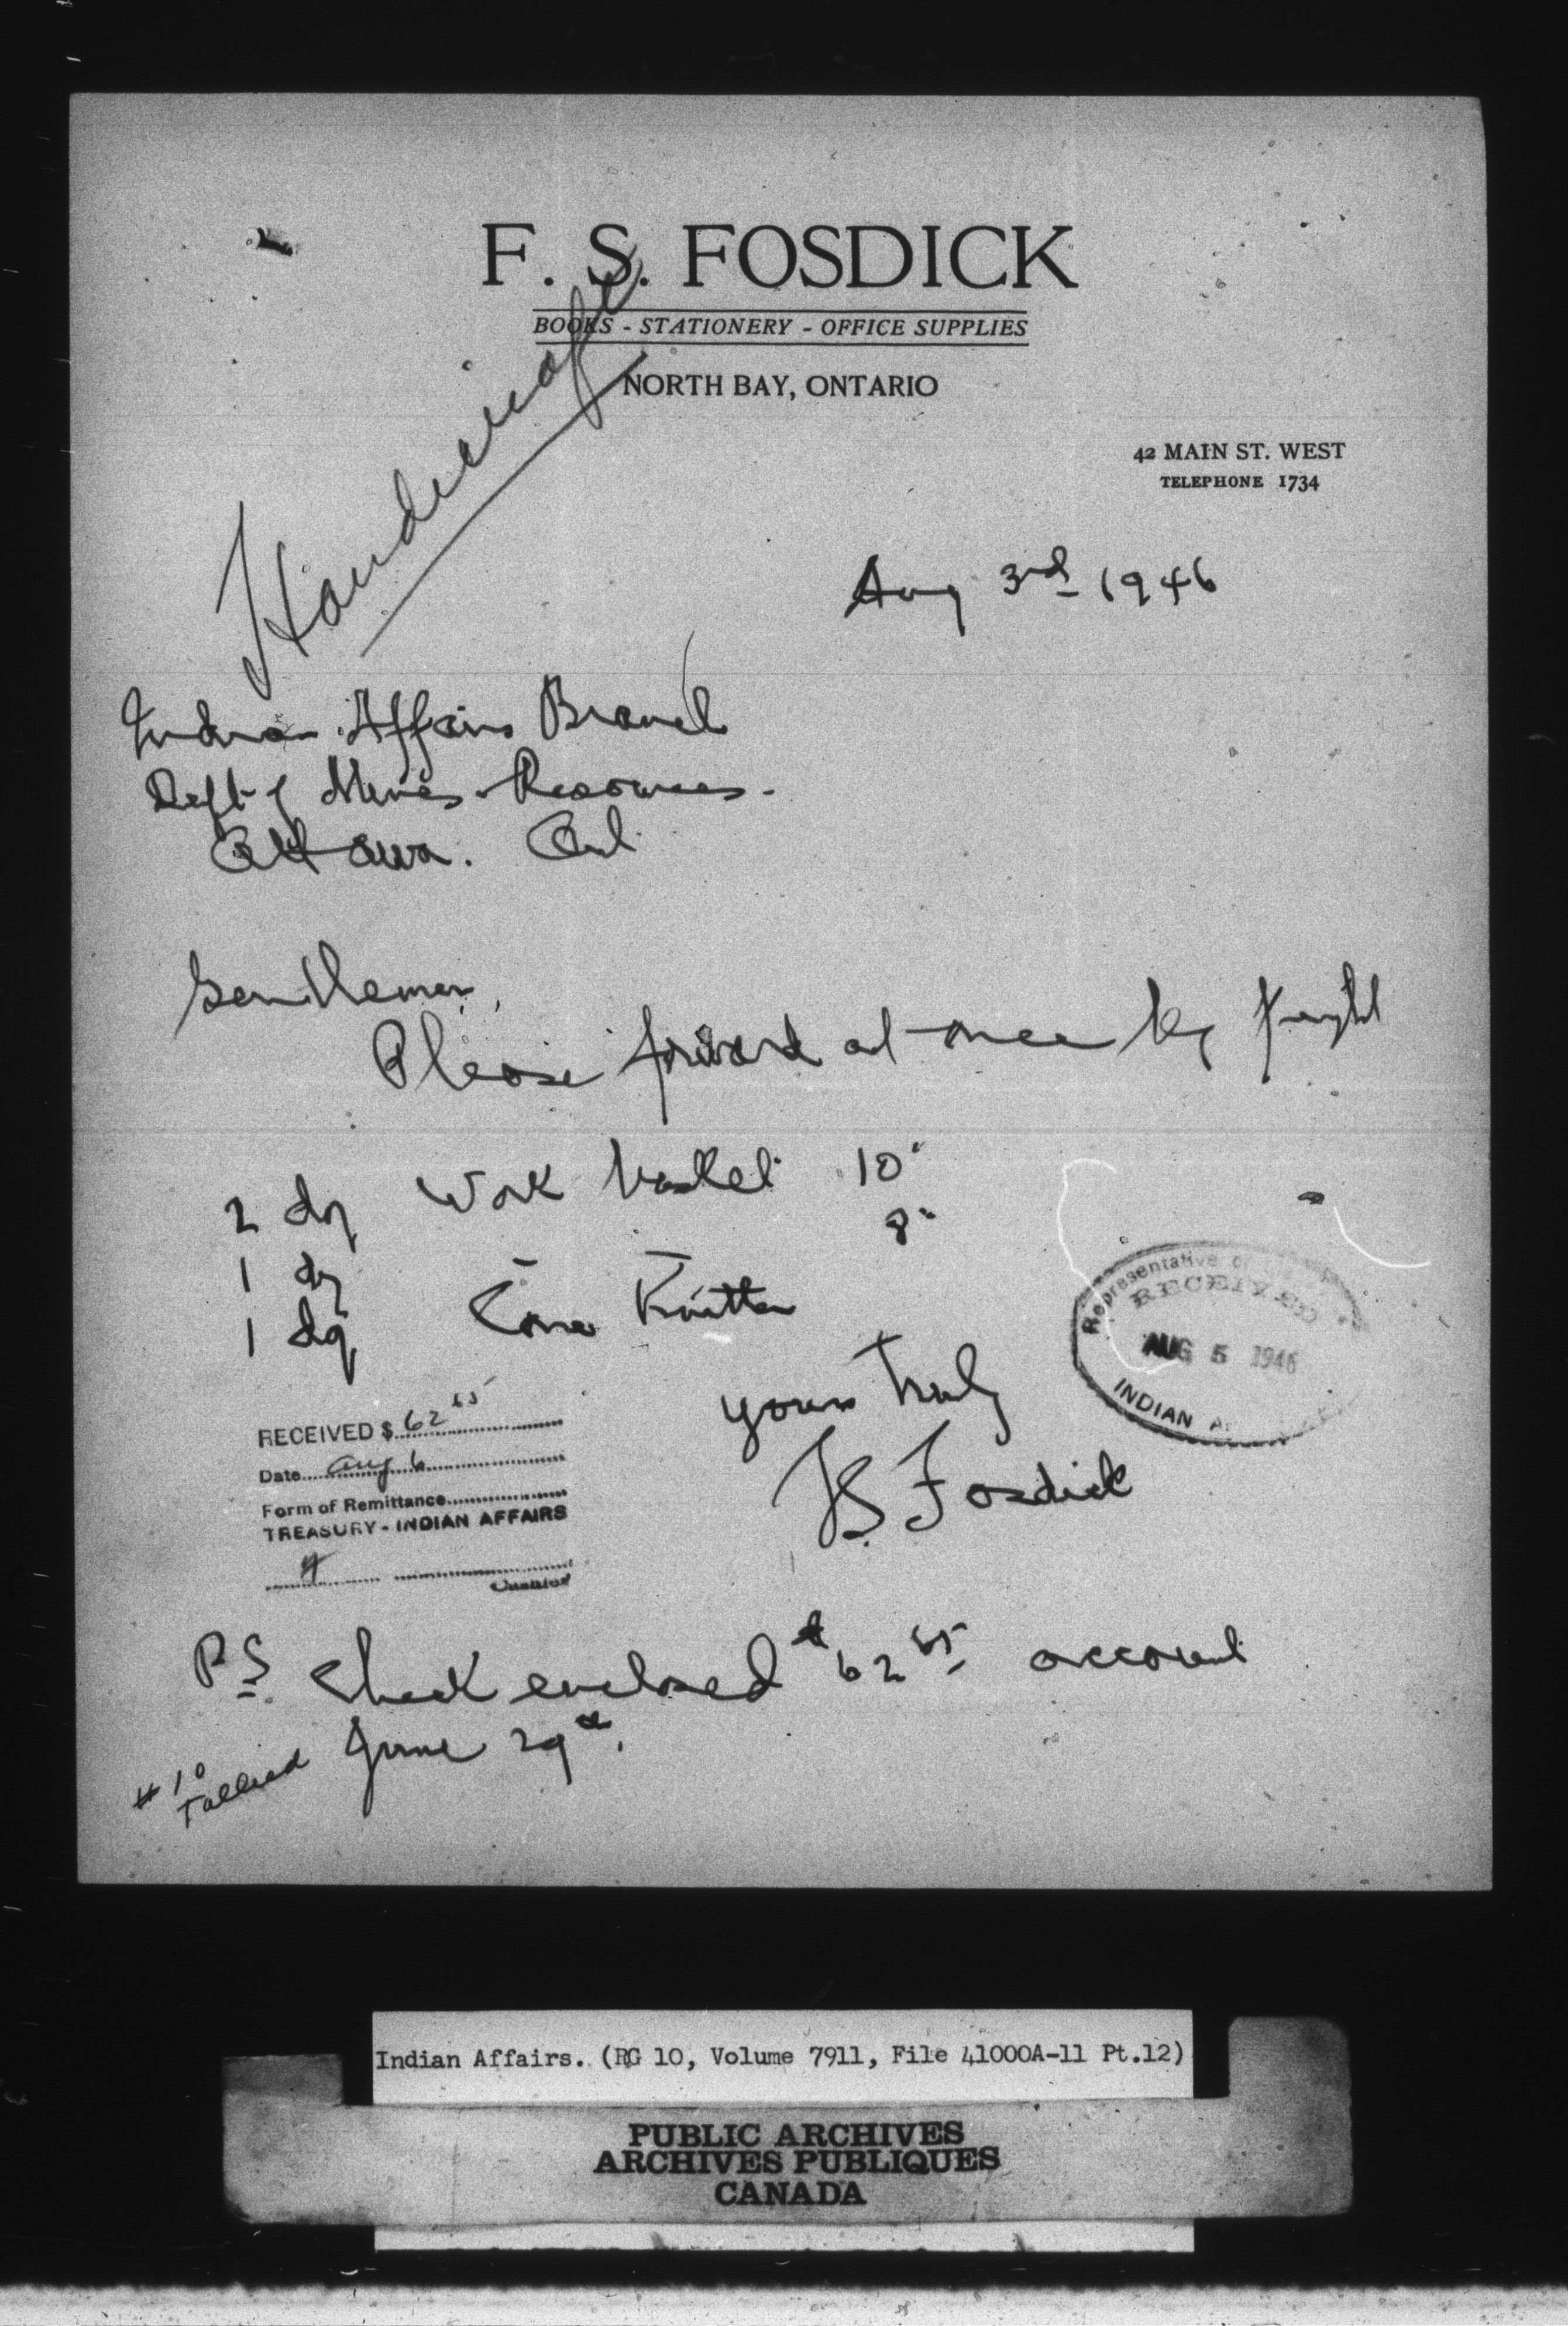 F. S. FOSDICK
BOOKS - STATIONERY - OFFICE SUPPLIES
NORTH BAY, ONTARIO
42 MAIN ST. WEST
TELEPHONE 1734
Handicraft
Aug 3rd 1946
Indian Affairs Branch
Dept of Mines & Resources.
Ottawa. Ont
Gentlemen,
Please forward at once by freight
2 dz Work basket 10"
1 dz 8"
1 dz Cone Knitter
Yours Truly
FS Fosdick
Representative of
RECEIVED
AUG 5 1946
INDIAN A
RECEIVED $ 62 65
Date Aug 6
Form of Remittance
TREASURY - INDIAN AFFAIRS
PS Check enclosed $62 65 account
June 29th.
#10
Indian Affairs. (RG 10, Volume 7911, File 41000A-11 Pt.12)
PUBLIC ARCHIVES
ARCHIVES PUBLIQUES
CANADA